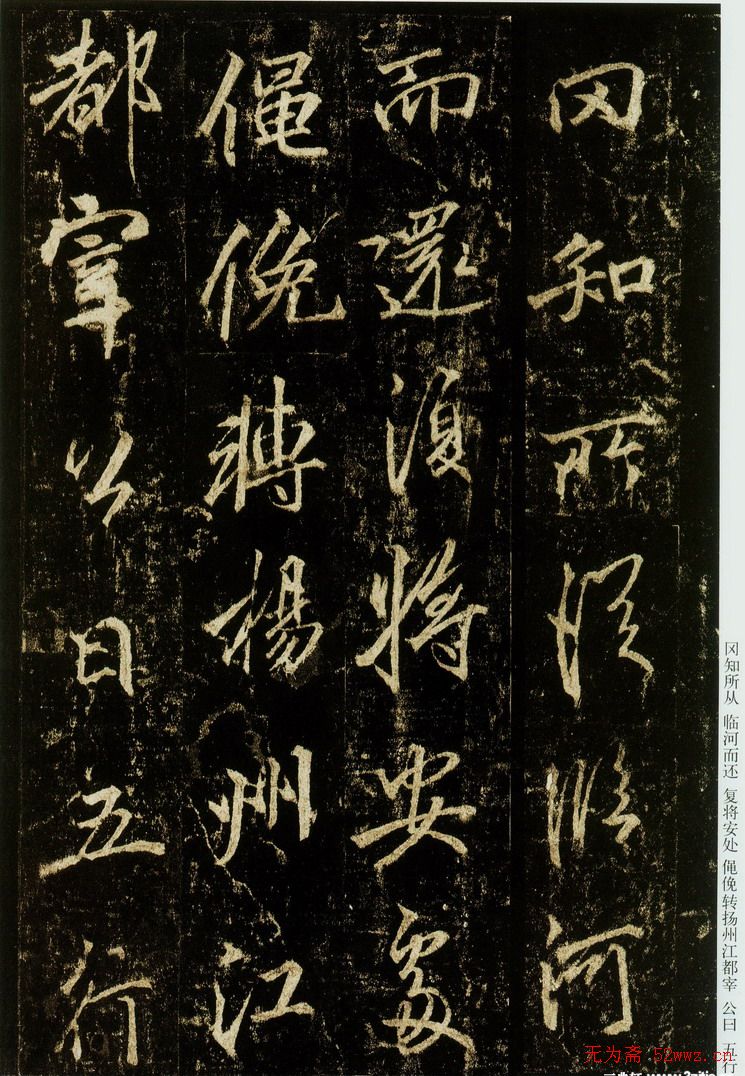 罔知所從臨河
而還復將安處
僶俛轉楊州江
都宰公曰五行
冈知所从 临河而还 复将安处 僶俛转扬州江都宰 公曰 五行
无为斋 52wwz.cn